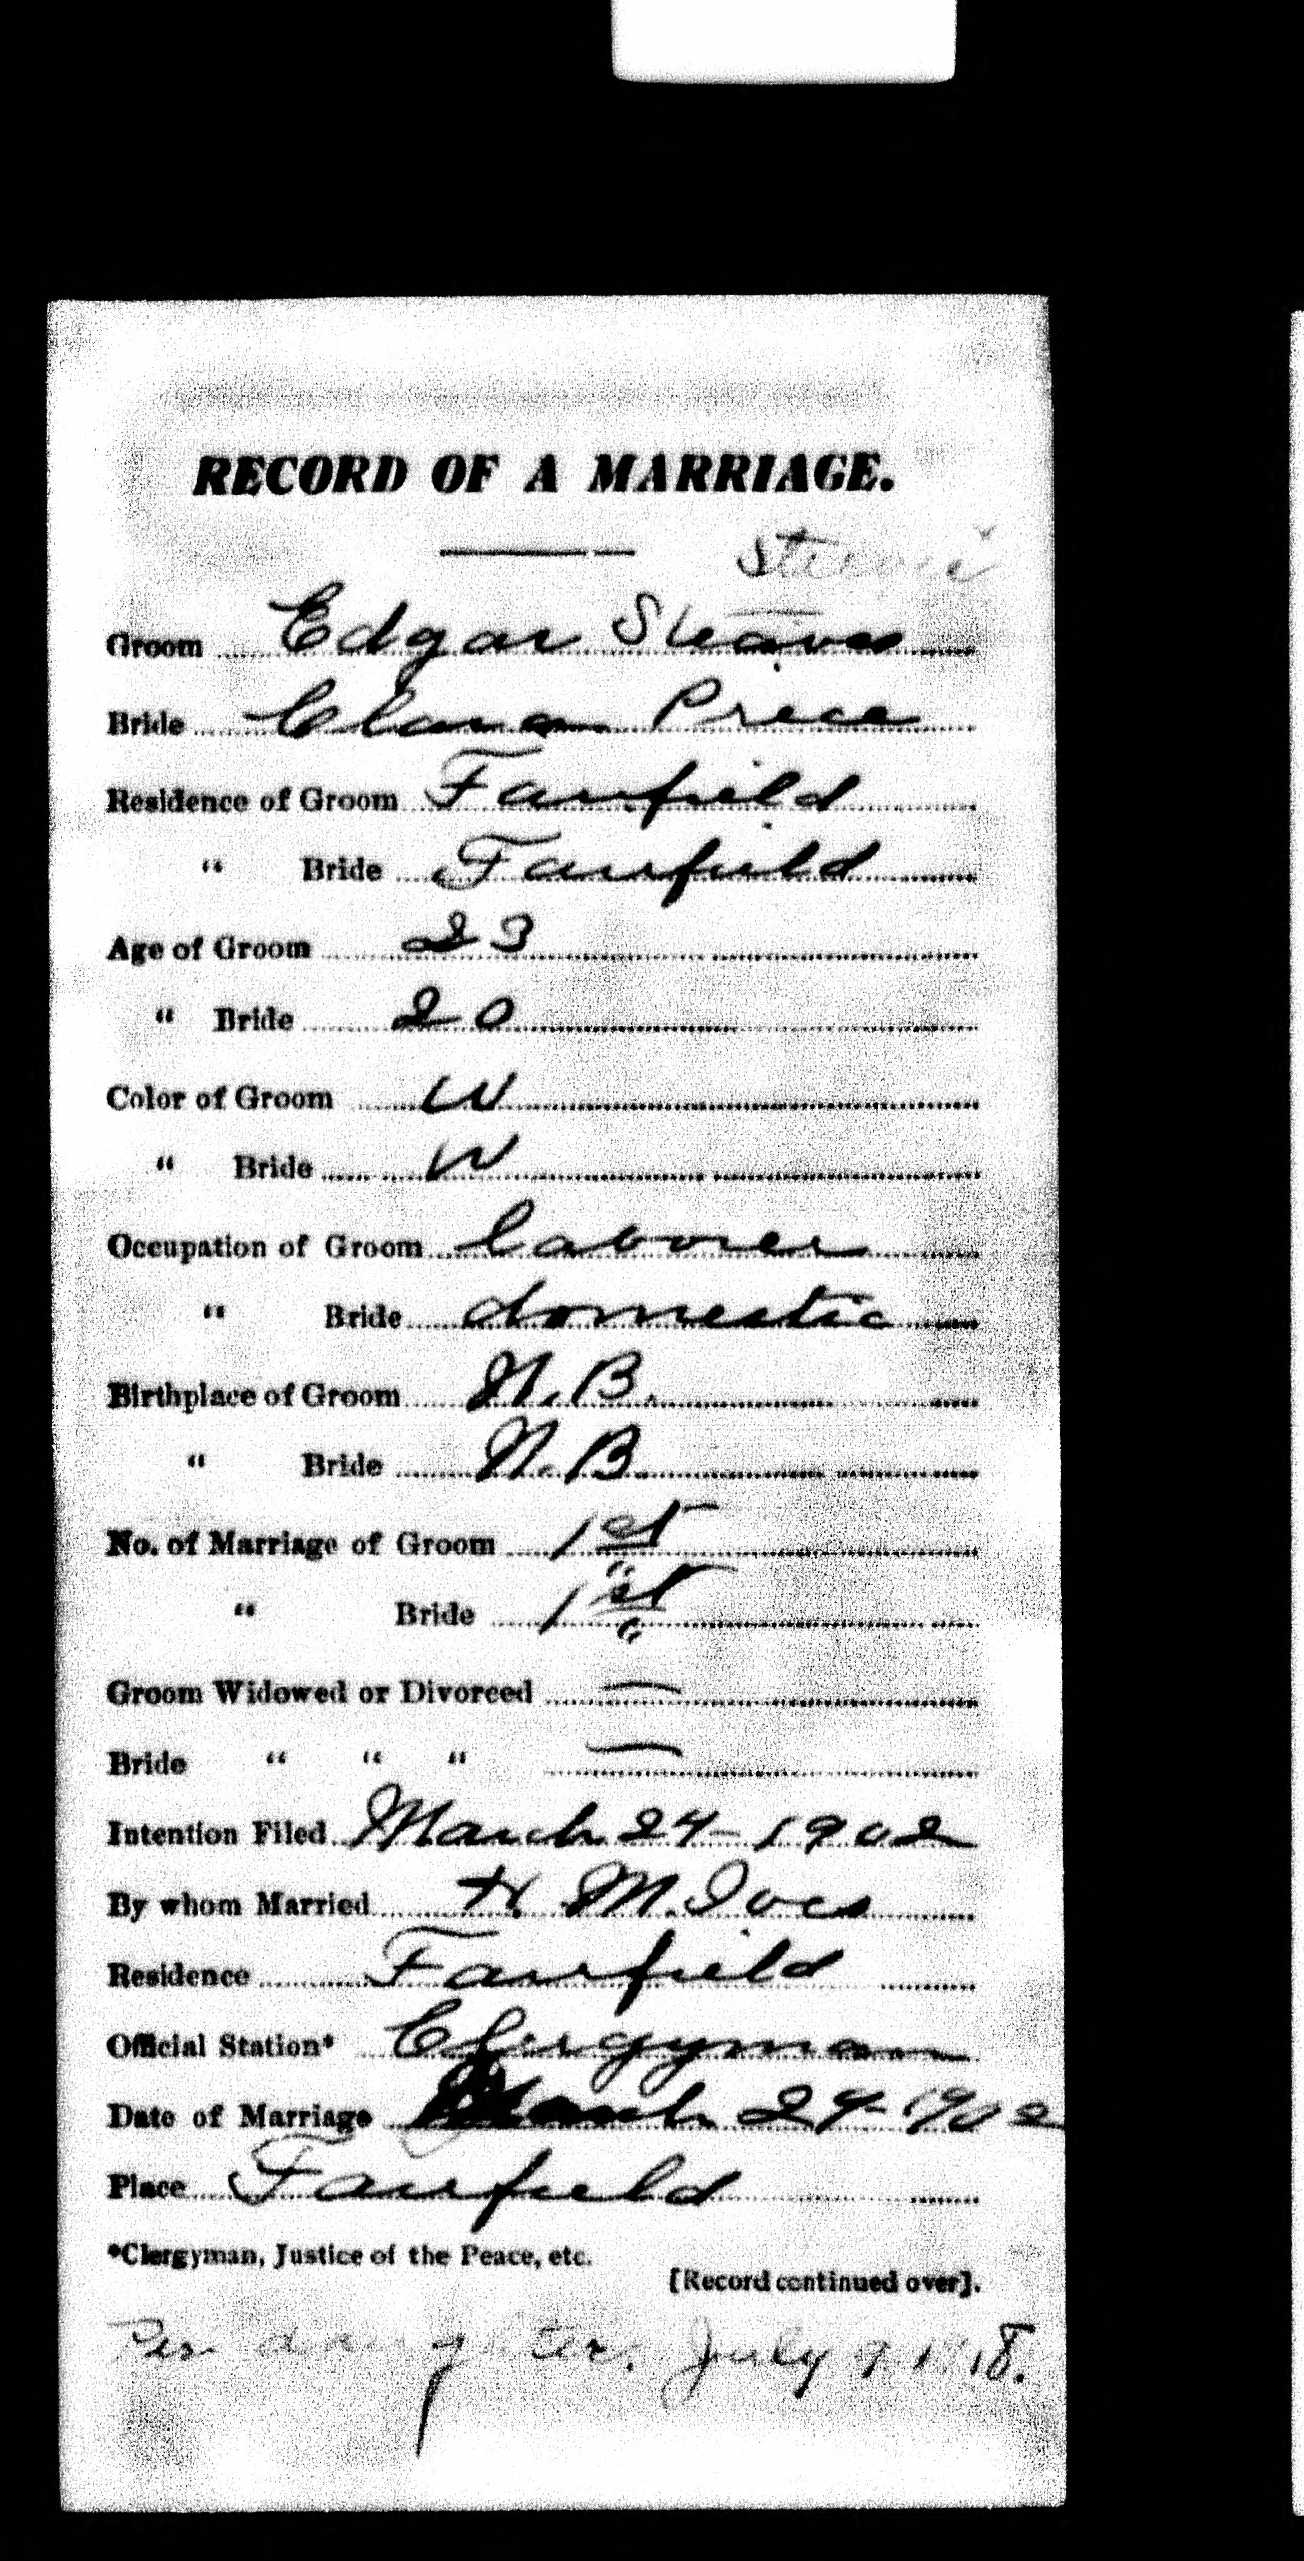 RECORD OF A MARRIAGE.
Groom Edgar Steaves
Bride Clara Price
Residence of Groom Fairfield
" Bride Fairfield
Age of Groom 23
" Bride 20
Color of Groom W
" Bride W
Occupation of Groom laborer
" Bride domestic
Birthplace of Groom N.B.
" Bride N.B.
No. of Marriage of Groom 1st
" Bride 1st
Groom Widowed or Divorced —
Bride " " " —
Intention Filed March 24-1902
By whom Married H. M. Ives
Residence Fairfield
Official Station* Clergyman
Date of Marriage March 29-1902
Place Fairfield
*Clergyman, Justice of the Peace, etc.
[Record continued over].
Per daughter. July 9